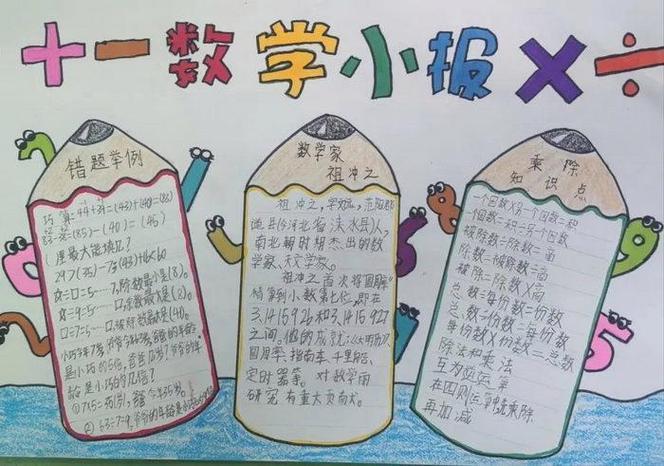 十一数学小报×÷
错题举例
巧算=44+39=(43)+(40)=(83)
83-38=(85)-(40)=(45)
()里最大能填几?
29>7(35)-75(43)+16<60
☆÷□=5……7,除数最小是(8)。
☆÷9=5……□,余数最大是(8)。
□÷7=5……□,被除数最大是(40)。
是小巧的5倍,爸爸几岁?爷爷的年
龄是小巧的几倍?
①7×5=35(岁),爸爸今年35岁。
数学家
祖冲之
祖冲之,字文远,范阳郡
遒县(今河北省涞水县)人,
南北朝时期杰出的数
学家、天文学家。
祖冲之首次将圆周率
精算到小数第七位,即在
3.1415926和3.1415927
之间。他的成就:《大明历》
圆周率、指南车、千里船、
定时器等。对数学用
研究有重大贡献。
乘除
知识点
一个因数×另一个因数=积
一个因数=积÷另一个因数
被除数÷除数=商
除数=被除数÷商
被除=除数×商
总数÷每份数=份数
总数÷份数=每份数
每份数×份数=总数
除法和乘法
互为逆运算
在四则运算中先乘除
再加减